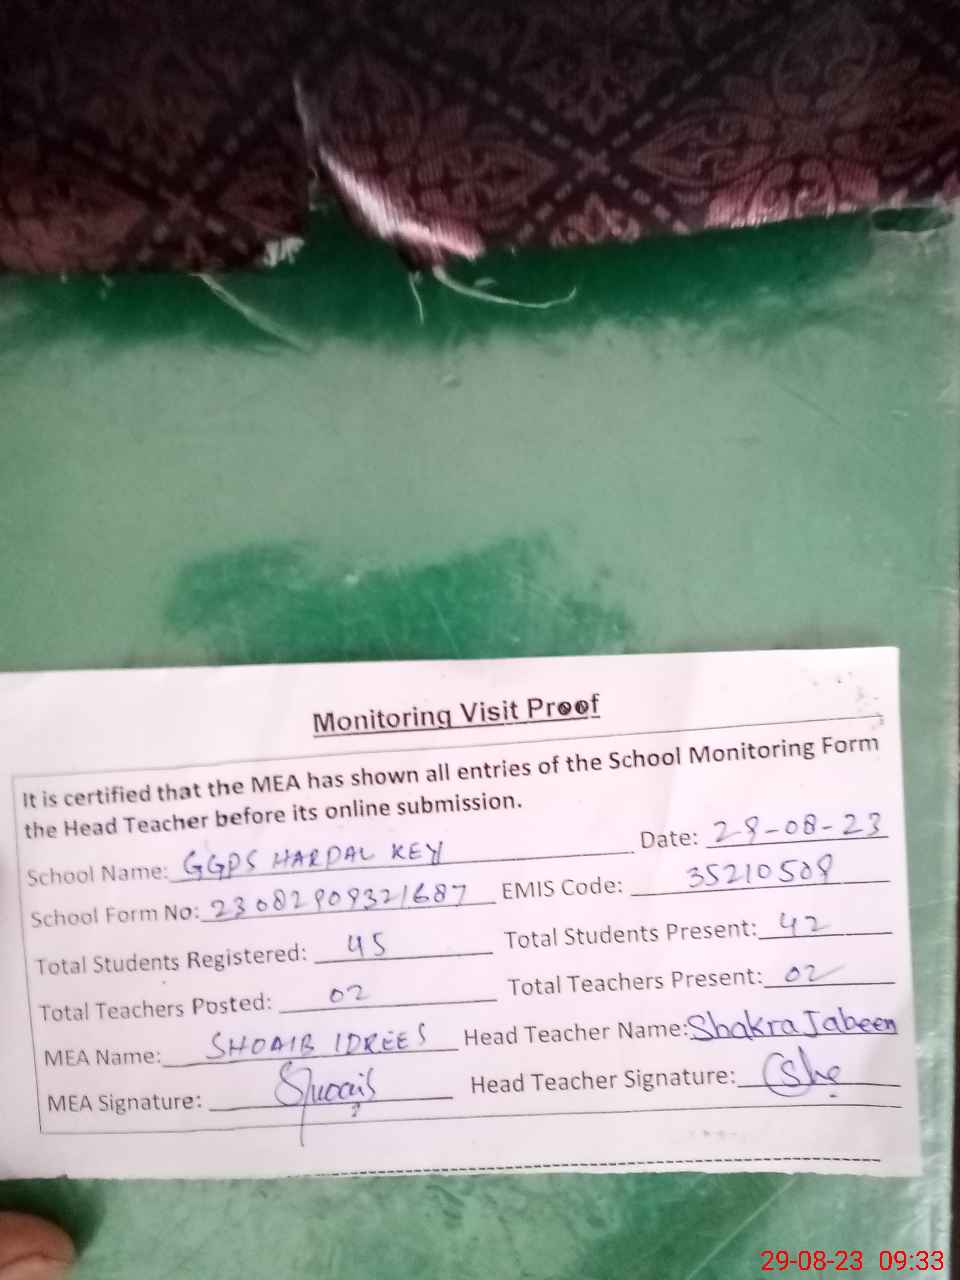 Monitoring Visit Proof
It is certified that the MEA has shown all entries of the School Monitoring Form
the Head Teacher before its online submission.
School Name: GGPS HARPAL KEY Date: 29-08-23
School Form No: 23082909321687 EMIS Code: 35210509
Total Students Registered: 45 Total Students Present: 42
Total Teachers Posted: 02 Total Teachers Present: 02
MEA Name: SHOAIB IDREES Head Teacher Name: Shakra Jabeen
MEA Signature: Shoaib Head Teacher Signature:
29-08-23 09:33